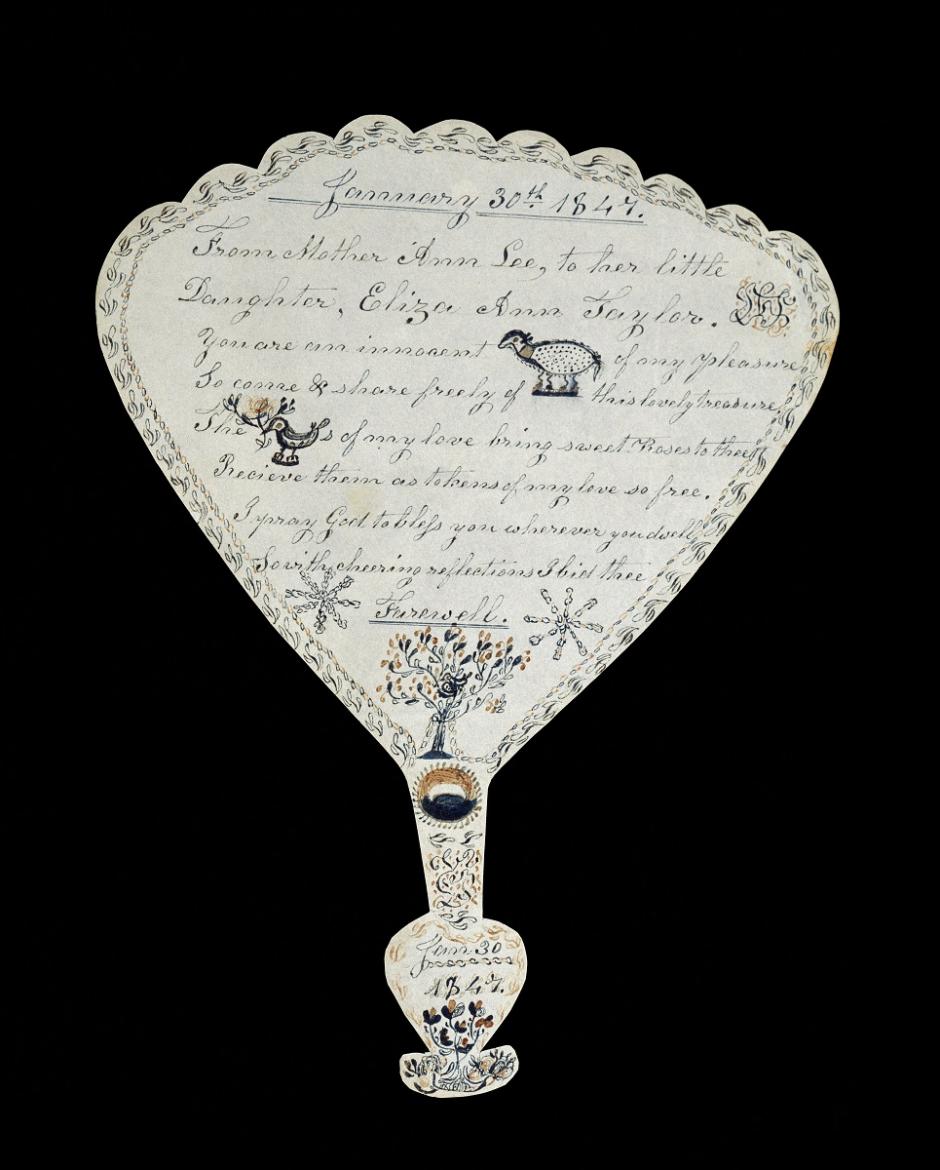 January 30th 1847.
From Mother Ann Lee, to her little
Daughter, Eliza Ann Taylor.
You are an innocent of my pleasure
So come & share freely of this lovely treasure,
The s of my love bring sweet Roses to thee
Recieve them as tokens of my love so free.
I pray God to bless you wherever you dwell
So with cheering reflections I bid thee
Farewell.
Jan 30
1847.